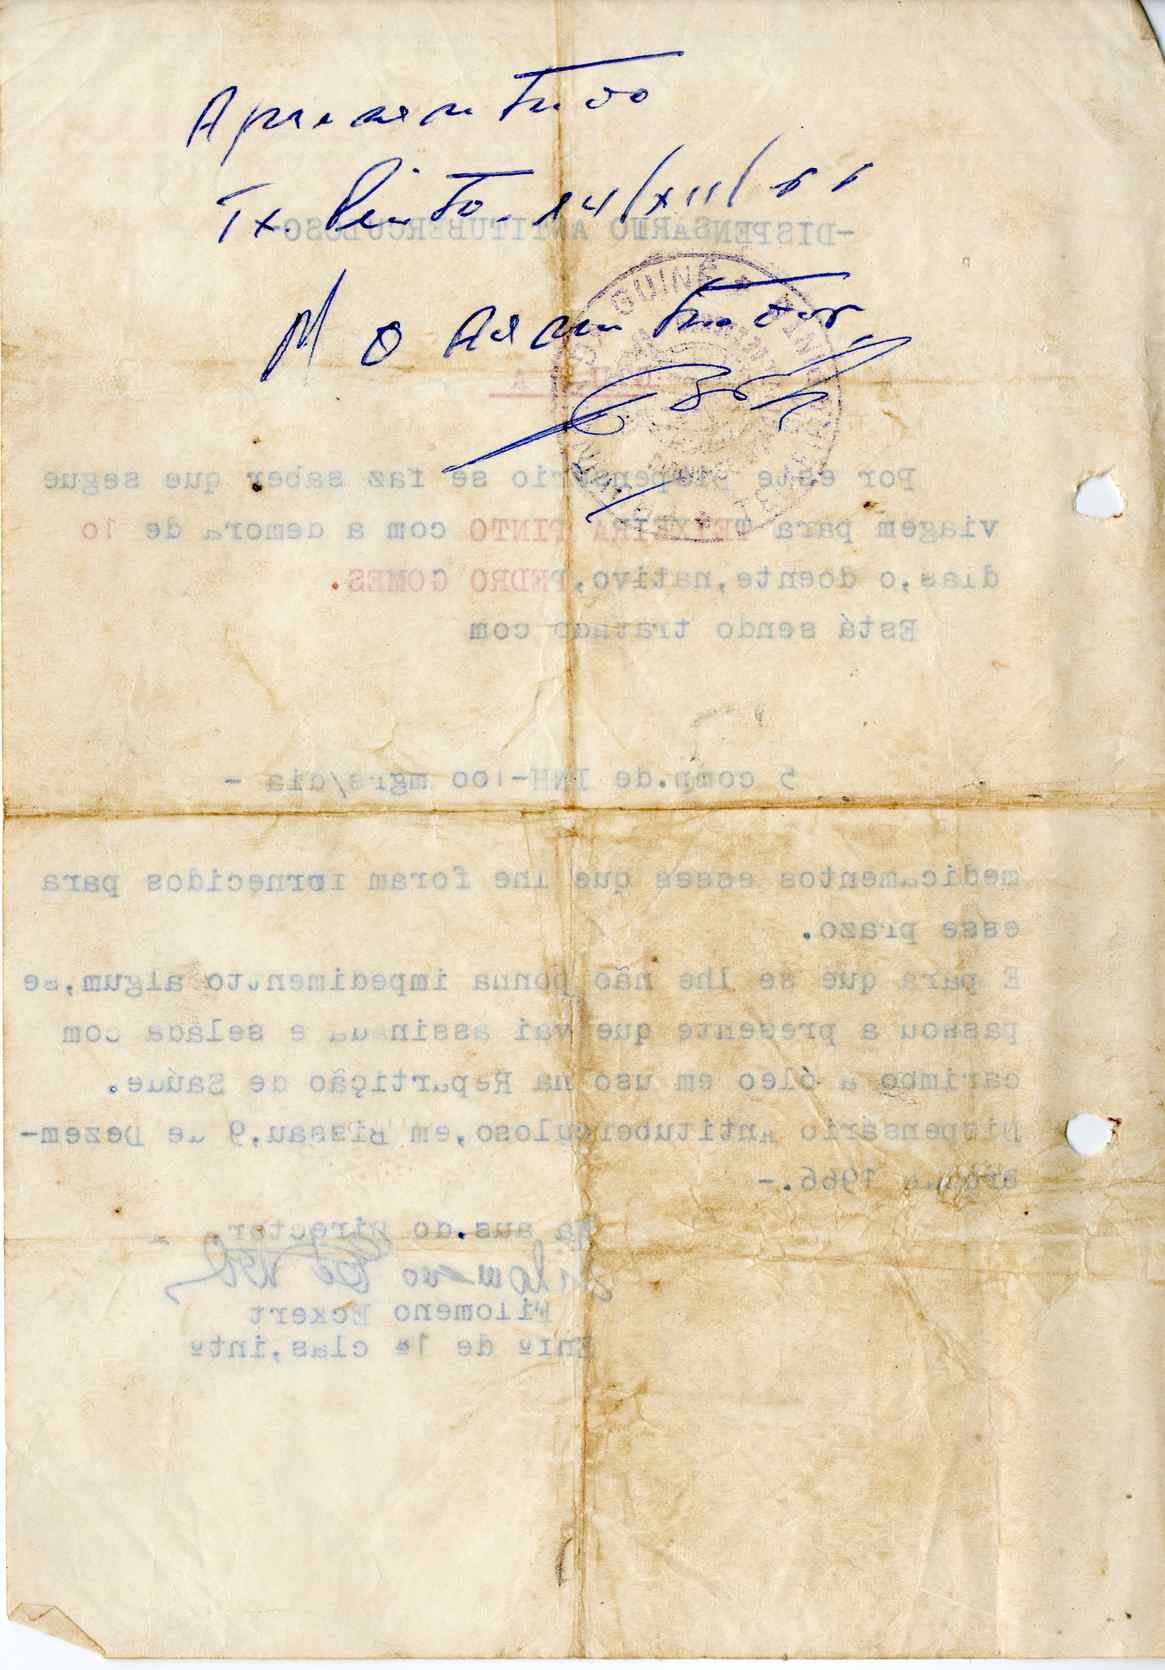 Apresentado
Tx. Pinto. 14/XII/66
O Administrador,
GUINÉ
-DISPENSÁRIO ANTITUBERCULOSO-
Por este Dispensário se faz saber que segue
viagem para TEIXEIRA PINTO com a demora de 10
dias,o doente,nativo,PEDRO GOMES.
Está sendo tratado com
5 comp.de INH-100 mgrs/dia -
medicamentos esses que lhe foram fornecidos para
esse prazo.
E para que se lhe não ponha impedimento algum,se
passou a presente que vai assinada e selada com
carimbo a óleo em uso na Repartição de Saúde.
Dispensário Antituberculoso,em Bissau,9 de Dezem-
bro de 1966.-
Na aus.do Director,
Filomeno Eckert
Filomeno Eckert
Enfº de 1ª clas,intº